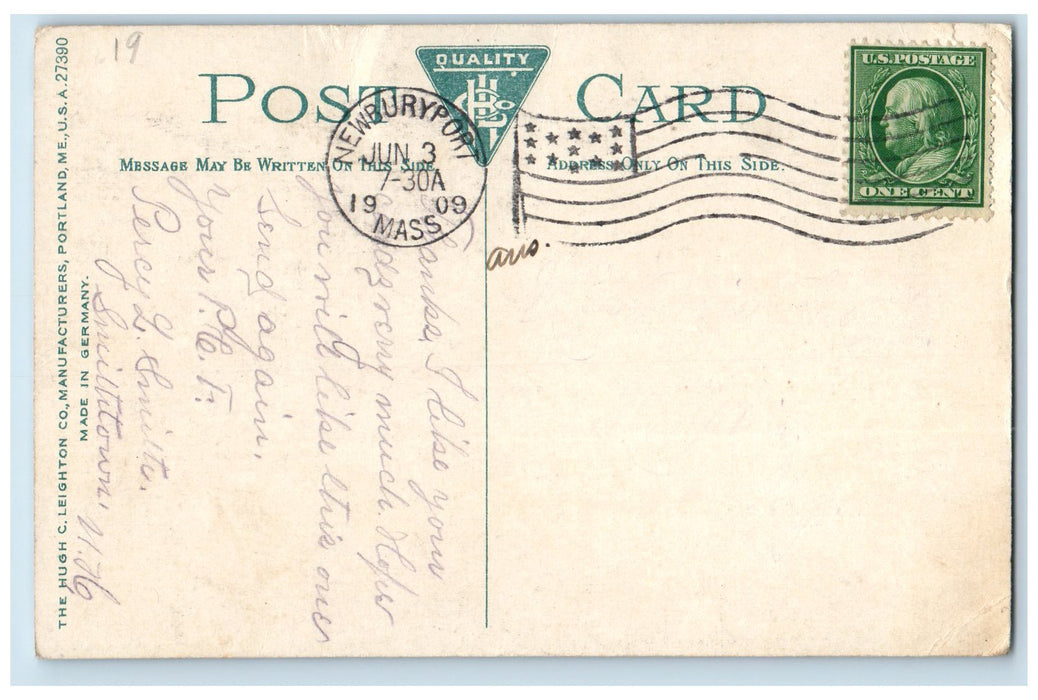 19
POST CARD
QUALITY
HCL Co
MESSAGE MAY BE WRITTEN ON THIS SIDE.
ADDRESS ONLY ON THIS SIDE.
NEWBURYPORT
JUN 3
7-30A
1909
MASS
U.S. POSTAGE
ONE CENT
ans.
Thanks, I like your
cards very much. Hope
you will like this one
Send again.
Your P.C.F.
Percy L. Smith.
Smithtown, N.H
THE HUGH C. LEIGHTON CO., MANUFACTURERS, PORTLAND, ME., U.S.A. 27390
MADE IN GERMANY.